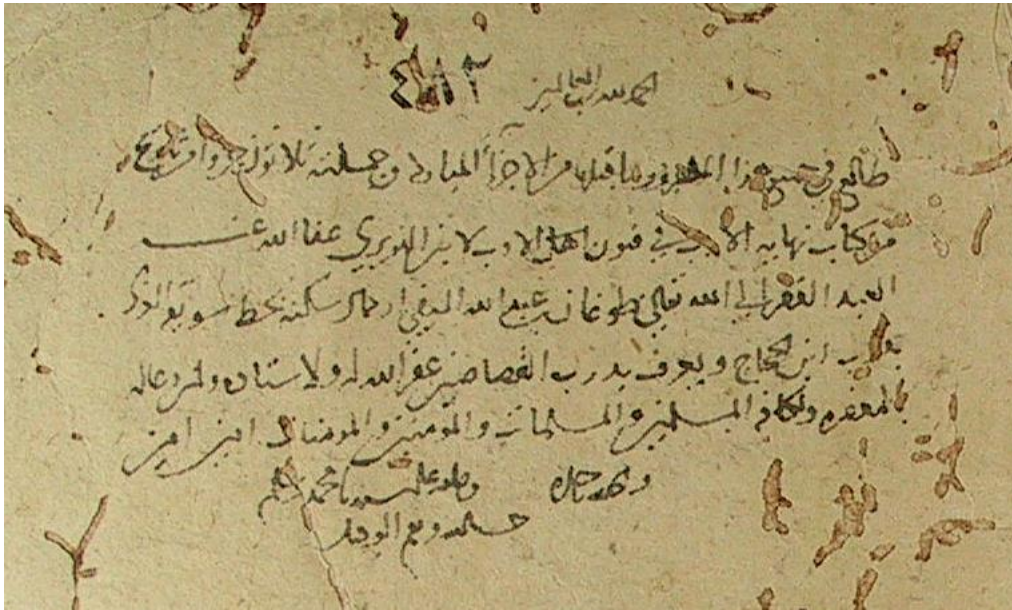 الحمد لله رب العالمين
طالع في جميع هذا وما قبله من الاجزاء المباركة وجملته ثلاثون جزوا
من كتاب نهاية الارب في فنون اهل الادب لابن النويري عفا الله عنه
العبد الفقير الى الله تعالى طوغان بن عبد الله سكنه بخط سويقة
بدرب ابن الحجاج ويعرف بدرب غفر الله له ولاستاذه ولمن دعا له
بالمغفرة ولكافة المسلمين والمسلمات والمؤمنين والمؤمنات امين امين
وصلى على سيدنا محمد
حسبنا الله ونعم الوكيل